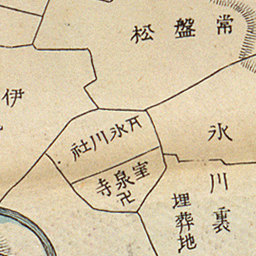 常盤松
伊
氷川社
室泉寺
氷川裏
埋葬地